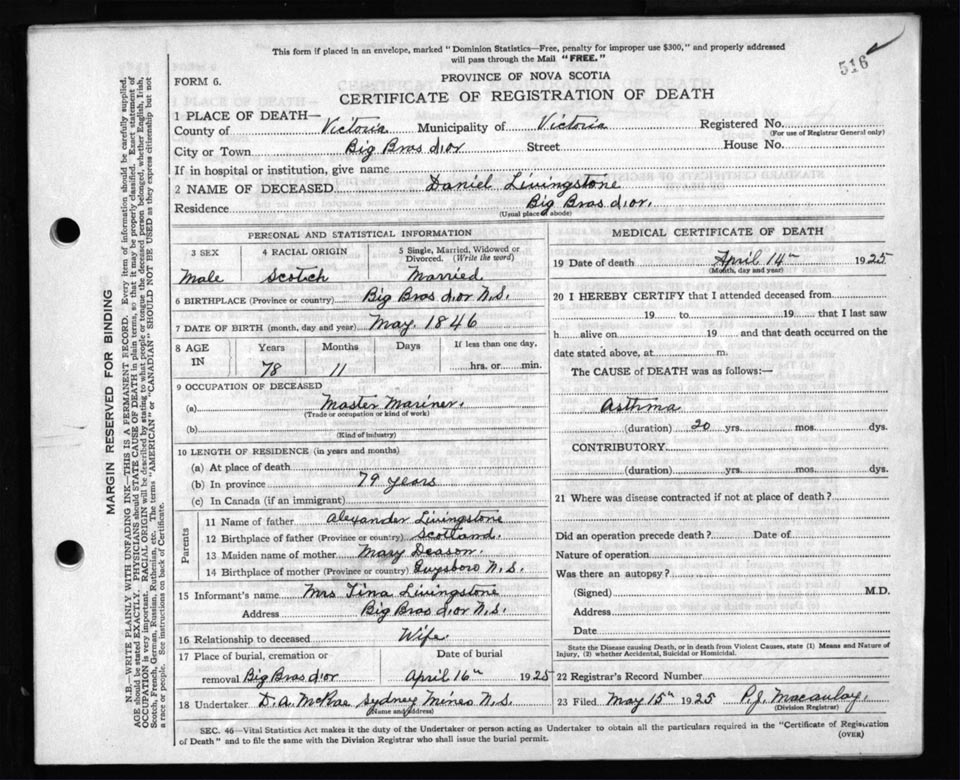 This form if placed in an envelope, marked "Dominion Statistics—Free, penalty for improper use $300," and properly addressed
will pass through the Mail "FREE."
516
FORM 6.
PROVINCE OF NOVA SCOTIA
CERTIFICATE OF REGISTRATION OF DEATH
1 PLACE OF DEATH—
County of Victoria Municipality of Victoria Registered No.
(For use of Registrar General only)
City or Town Big Bras d'or Street House No.
If in hospital or institution, give name
2 NAME OF DECEASED Daniel Livingstone
Residence Big Bras d'or.
(Usual place of abode)
PERSONAL AND STATISTICAL INFORMATION
3 SEX 4 RACIAL ORIGIN 5 Single, Married, Widowed or Divorced. (Write the word)
Male Scotch Married
6 BIRTHPLACE (Province or country) Big Bras d'or N.S.
7 DATE OF BIRTH (month, day and year) May. 1846
8 AGE IN Years Months Days If less than one day,
78 11 hrs. or min.
9 OCCUPATION OF DECEASED
(a) Master Mariner.
(Trade or occupation or kind of work)
(b)
(Kind of industry)
10 LENGTH OF RESIDENCE (in years and months)
(a) At place of death
(b) In province 79 years
(c) In Canada (if an immigrant)
Parents
11 Name of father Alexander Livingstone
12 Birthplace of father (Province or country) Scotland.
13 Maiden name of mother Mary Deason.
14 Birthplace of mother (Province or country) Guysboro N.S.
15 Informant's name Mrs Tina Livingstone
Address Big Bras d'or N.S.
16 Relationship to deceased Wife.
17 Place of burial, cremation or Date of burial
removal Big Bras d'or April 16th 1925
18 Undertaker D.A. McRae Sydney Mines N.S.
(Name and address)
MEDICAL CERTIFICATE OF DEATH
19 Date of death April 14th 1925
(Month, day and year)
20 I HEREBY CERTIFY that I attended deceased from
19 to 19 that I last saw
h alive on 19 and that death occurred on the
date stated above, at m.
The CAUSE of DEATH was as follows:—
Asthma
(duration) 20 yrs. mos. dys.
CONTRIBUTORY
(duration) yrs. mos. dys.
21 Where was disease contracted if not at place of death?
Did an operation precede death? Date of
Nature of operation
Was there an autopsy?
(Signed) M.D.
Address
Date
State the Disease causing Death, or in death from Violent Causes, state (1) Means and Nature of
Injury, (2) whether Accidental, Suicidal or Homicidal.
22 Registrar's Record Number
23 Filed May 15th 1925 P.J. Macaulay.
(Division Registrar)
SEC. 46—Vital Statistics Act makes it the duty of the Undertaker or person acting as Undertaker to obtain all the particulars required in the "Certificate of Registration
of Death" and to file the same with the Division Registrar who shall issue the burial permit.
(OVER)
MARGIN RESERVED FOR BINDING
N.B.—WRITE PLAINLY WITH UNFADING INK—THIS IS A PERMANENT RECORD. Every item of information should be carefully supplied.
AGE should be stated EXACTLY. PHYSICIANS should STATE CAUSE OF DEATH in plain terms, so that it may be properly classified. Exact statement of
OCCUPATION is very important. RACIAL ORIGIN will be described by stating to what people or tongue the deceased person belonged, whether English, Irish,
Scotch, French, German, Russian, Ruthenian, etc. The terms "AMERICAN" or "CANADIAN" SHOULD NOT BE USED as they express citizenship but not
a race or people. See instructions on back of Certificate.